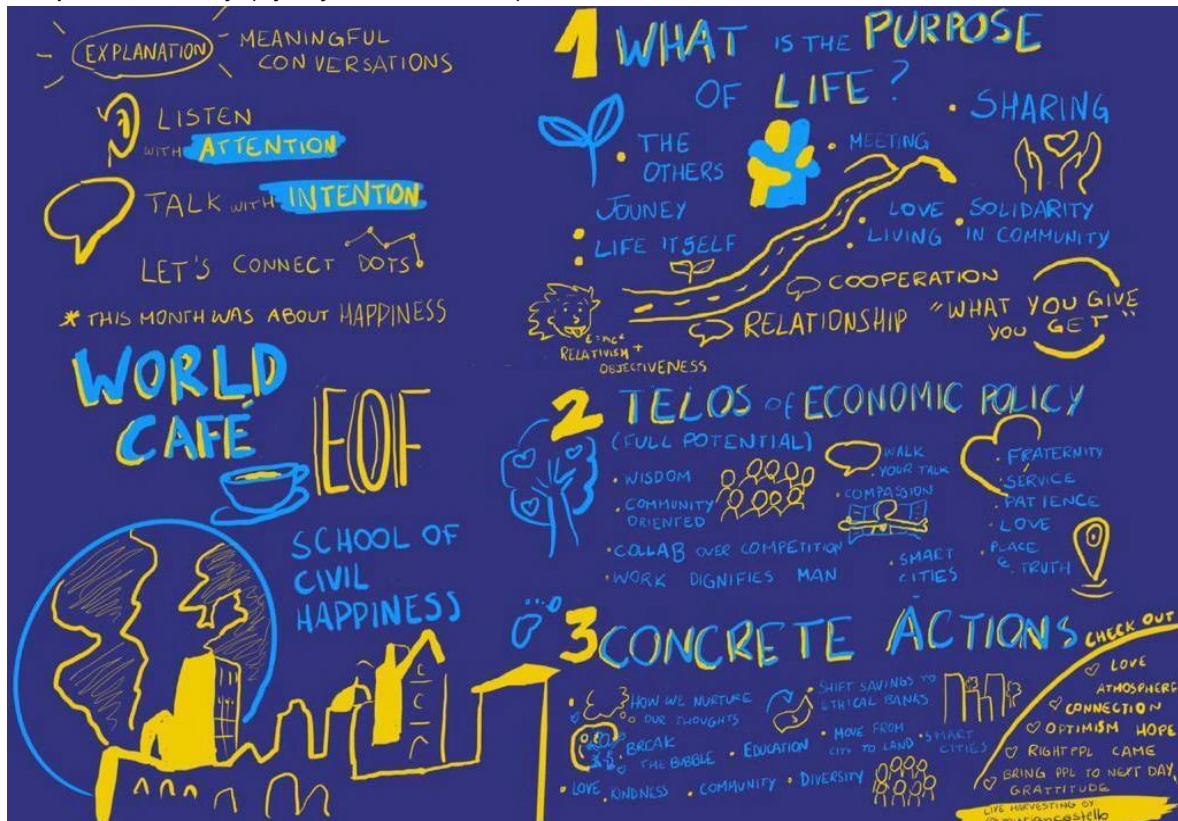 EXPLANATION - MEANINGFUL
CONVERSATIONS
LISTEN
WITH ATTENTION
TALK WITH INTENTION
LET'S CONNECT DOTS
* THIS MONTH WAS ABOUT HAPPINESS
WORLD
CAFÉ
EOF
SCHOOL OF
CIVIL
HAPPINESS
1 WHAT IS THE PURPOSE
OF LIFE?
• THE
OTHERS
• MEETING
• SHARING
JOUNEY
• LIFE ITSELF
• LOVE
• LIVING
• SOLIDARITY
IN COMMUNITY
COOPERATION
RELATIONSHIP
"WHAT YOU GIVE
YOU GET"
E=mc²
RELATIVISM +
OBJECTIVENESS
2 TELOS OF ECONOMIC POLICY
(FULL POTENTIAL)
• WISDOM
• COMMUNITY
ORIENTED
• COLLAB OVER COMPETITION
• WORK DIGNIFIES MAN
WALK
YOUR TALK
• COMPASSION
• SMART
CITIES
• FRATERNITY
• SERVICE
PATIENCE
• LOVE
• PLACE
& TRUTH
3 CONCRETE ACTIONS
HOW WE NURTURE
OUR THOUGHTS
BREAK
THE BUBBLE
• EDUCATION
• SHIFT SAVINGS TO
ETHICAL BANKS
• MOVE FROM
CITY TO LAND
• SMART
CITIES
• LOVE, KINDNESS
• COMMUNITY
• DIVERSITY
CHECK OUT
LOVE
ATMOSPHERE
CONNECTION
OPTIMISM HOPE
RIGHT PPL CAME
BRING PPL TO NEXT DAY,
GRATTITUDE
LIVE HARVESTING BY